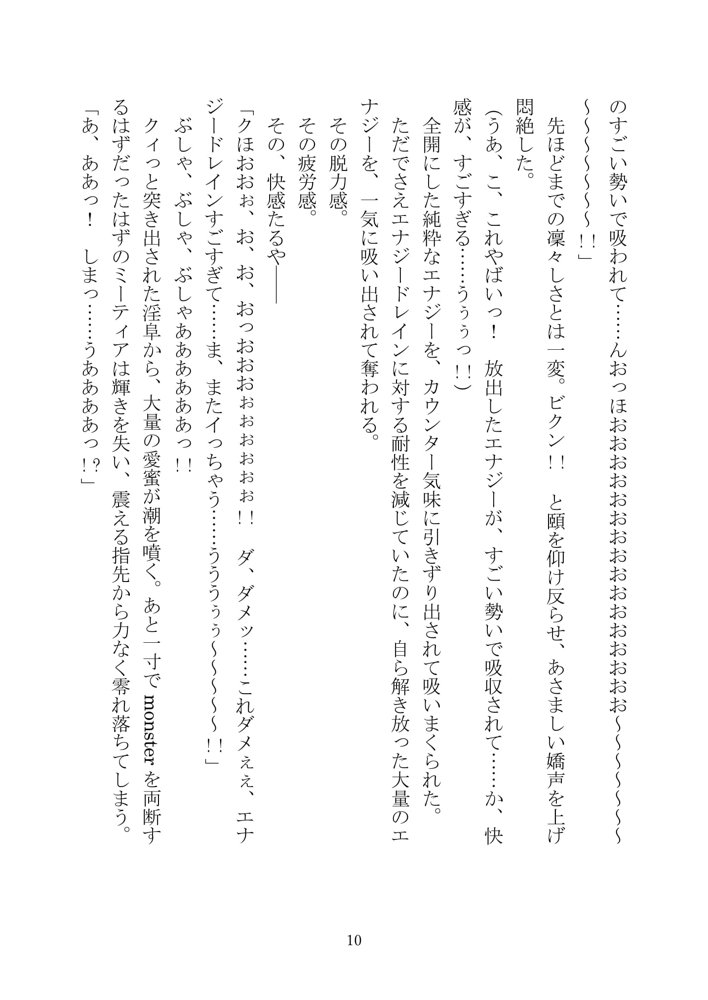 のすごい勢いで吸われて……んおっほおおおおおおおおおおおおおおお～～～～～～～
～～～～～～～!!」
　先ほどまでの凜々しさとは一変。ビクン!!　と頤を仰け反らせ、あさましい嬌声を上げ
悶絶した。
（うあ、こ、これやばいっ！　放出したエナジーが、すごい勢いで吸収されて……か、快
感が、すごすぎる……うぅぅっ!!）
　全開にした純粋なエナジーを、カウンター気味に引きずり出されて吸いまくられた。
　ただでさえエナジードレインに対する耐性を減じていたのに、自ら解き放った大量のエ
ナジーを、一気に吸い出されて奪われる。
　その脱力感。
　その疲労感。
　その、快感たるや――
「クほおおぉ、お、お、おっおおおぉぉぉぉぉ!!　ダ、ダメッ……これダメぇぇ、エナ
ジードレインすごすぎて……ま、またイっちゃう……うううぅぅ～～～～～!!」
　ぶしゃ、ぶしゃ、ぶしゃああああああっ!!
　クィっと突き出された淫阜から、大量の愛蜜が潮を噴く。あと一寸で monster を両断す
るはずだったはずのミーティアは輝きを失い、震える指先から力なく零れ落ちてしまう。
「あ、ああっ！　しまっ……うああああっ!?」
10